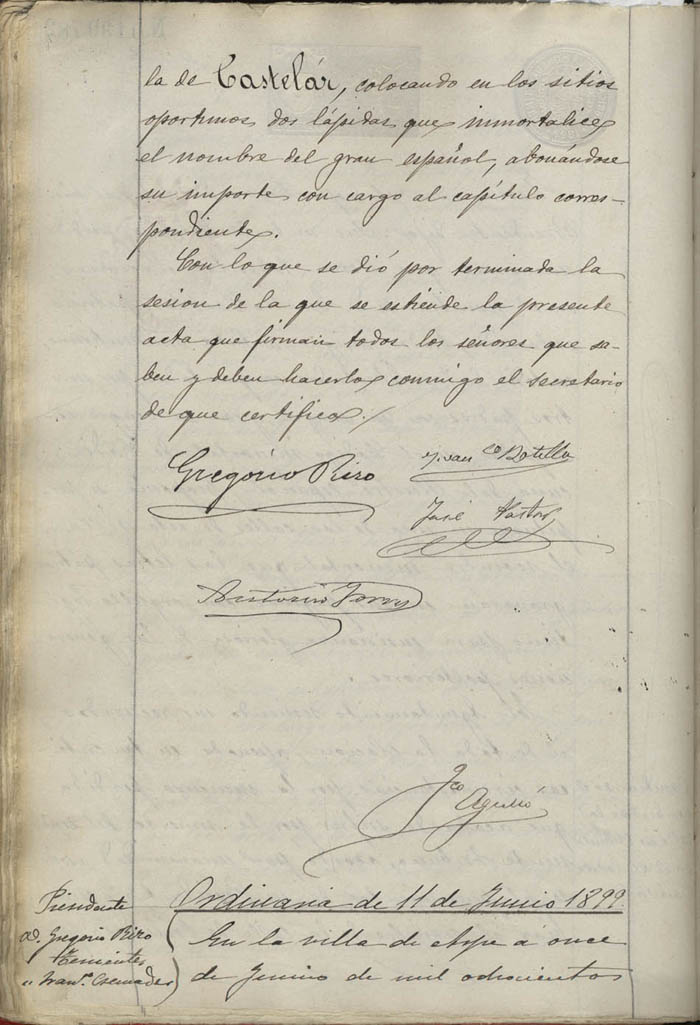 la de Castelár, colocando en los sitios
oportunos dos lápidas que inmortalice
el nombre del gran español, abonándose
su importe con cargo al capítulo corres-
pondiente.
Con lo que se dió por terminada la
sesion de la que se estiende la presente
acta que firman todos los señores que sa-
ben y deben hacerlo, conmigo el secretario
de que certifico./
Gregorio Rizo
Juan Co Botella
José Pastor
Antonio
Fco Agulló
Ordinaria de 11 de Junio 1899.
Presidente
D. Gregorio Rizo
Tenientes
" Franco. Cremades
En la villa de Aspe á once
de Junio de mil ochocientos